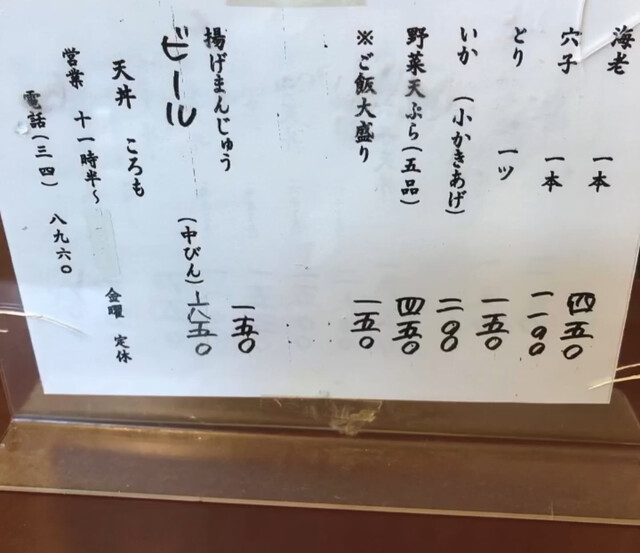 海老 一本 四五〇
穴子 一本 一一〇〇
とり 一ツ 一五〇
いか (小かきあげ) 二〇〇
野菜天ぷら(五品) 四五〇
※ご飯大盛り 一五〇
揚げまんじゅう 一五〇
ビール (中びん) 六五〇
天丼 ころも
営業 十一時半～ 金曜 定休
電話(三四) 八九六〇